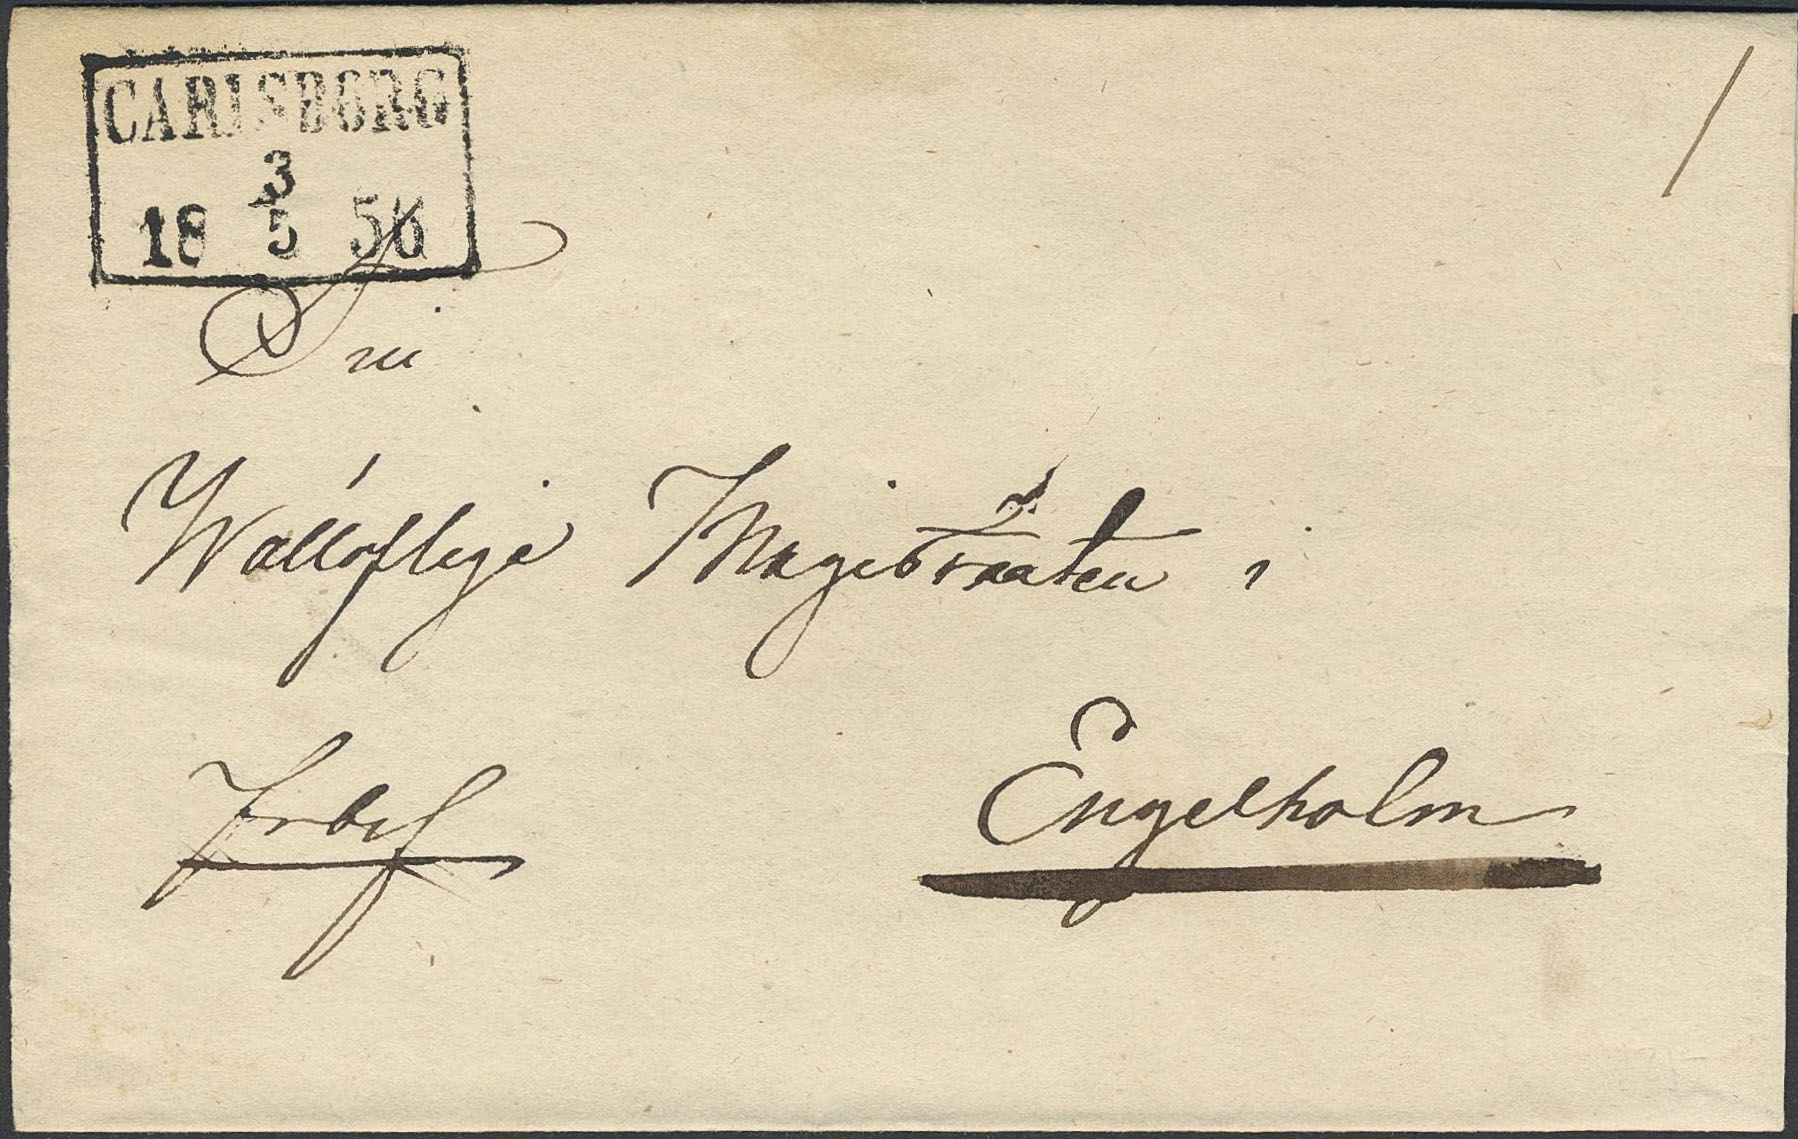 CARLSBORG
3
18 5 56
Till
Wällofliga Magistraten i
Frbref
Engelholm